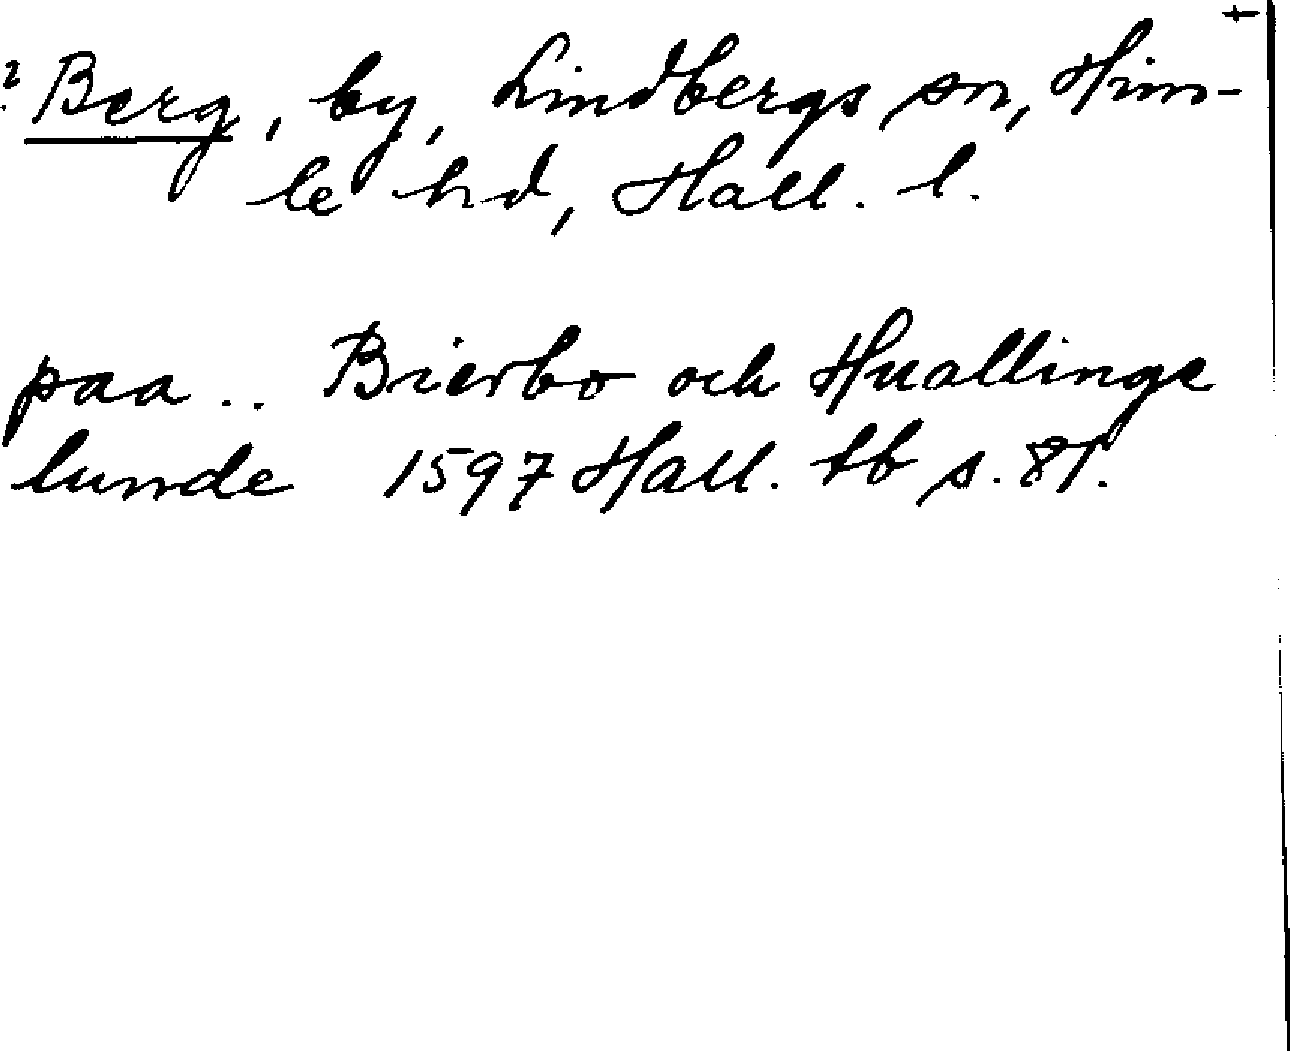 +
? Berg, by, Lindbergs sn, Him-
le hd, Hall. l.
paa .. Bierbo och Huallinge
lunde 1597 Hall. tb s. 81.